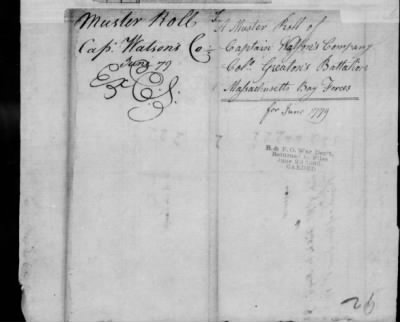 Muster Roll
Capt. Watson's Co
June 79
Ex C. S.
A Muster Roll of
Captain Watson's Company
Colo. Greaton's Battalion
Massachusetts Bay Forces
for June 1779
R. & P. O. War Dept.
Returned to Files
CARDED
26